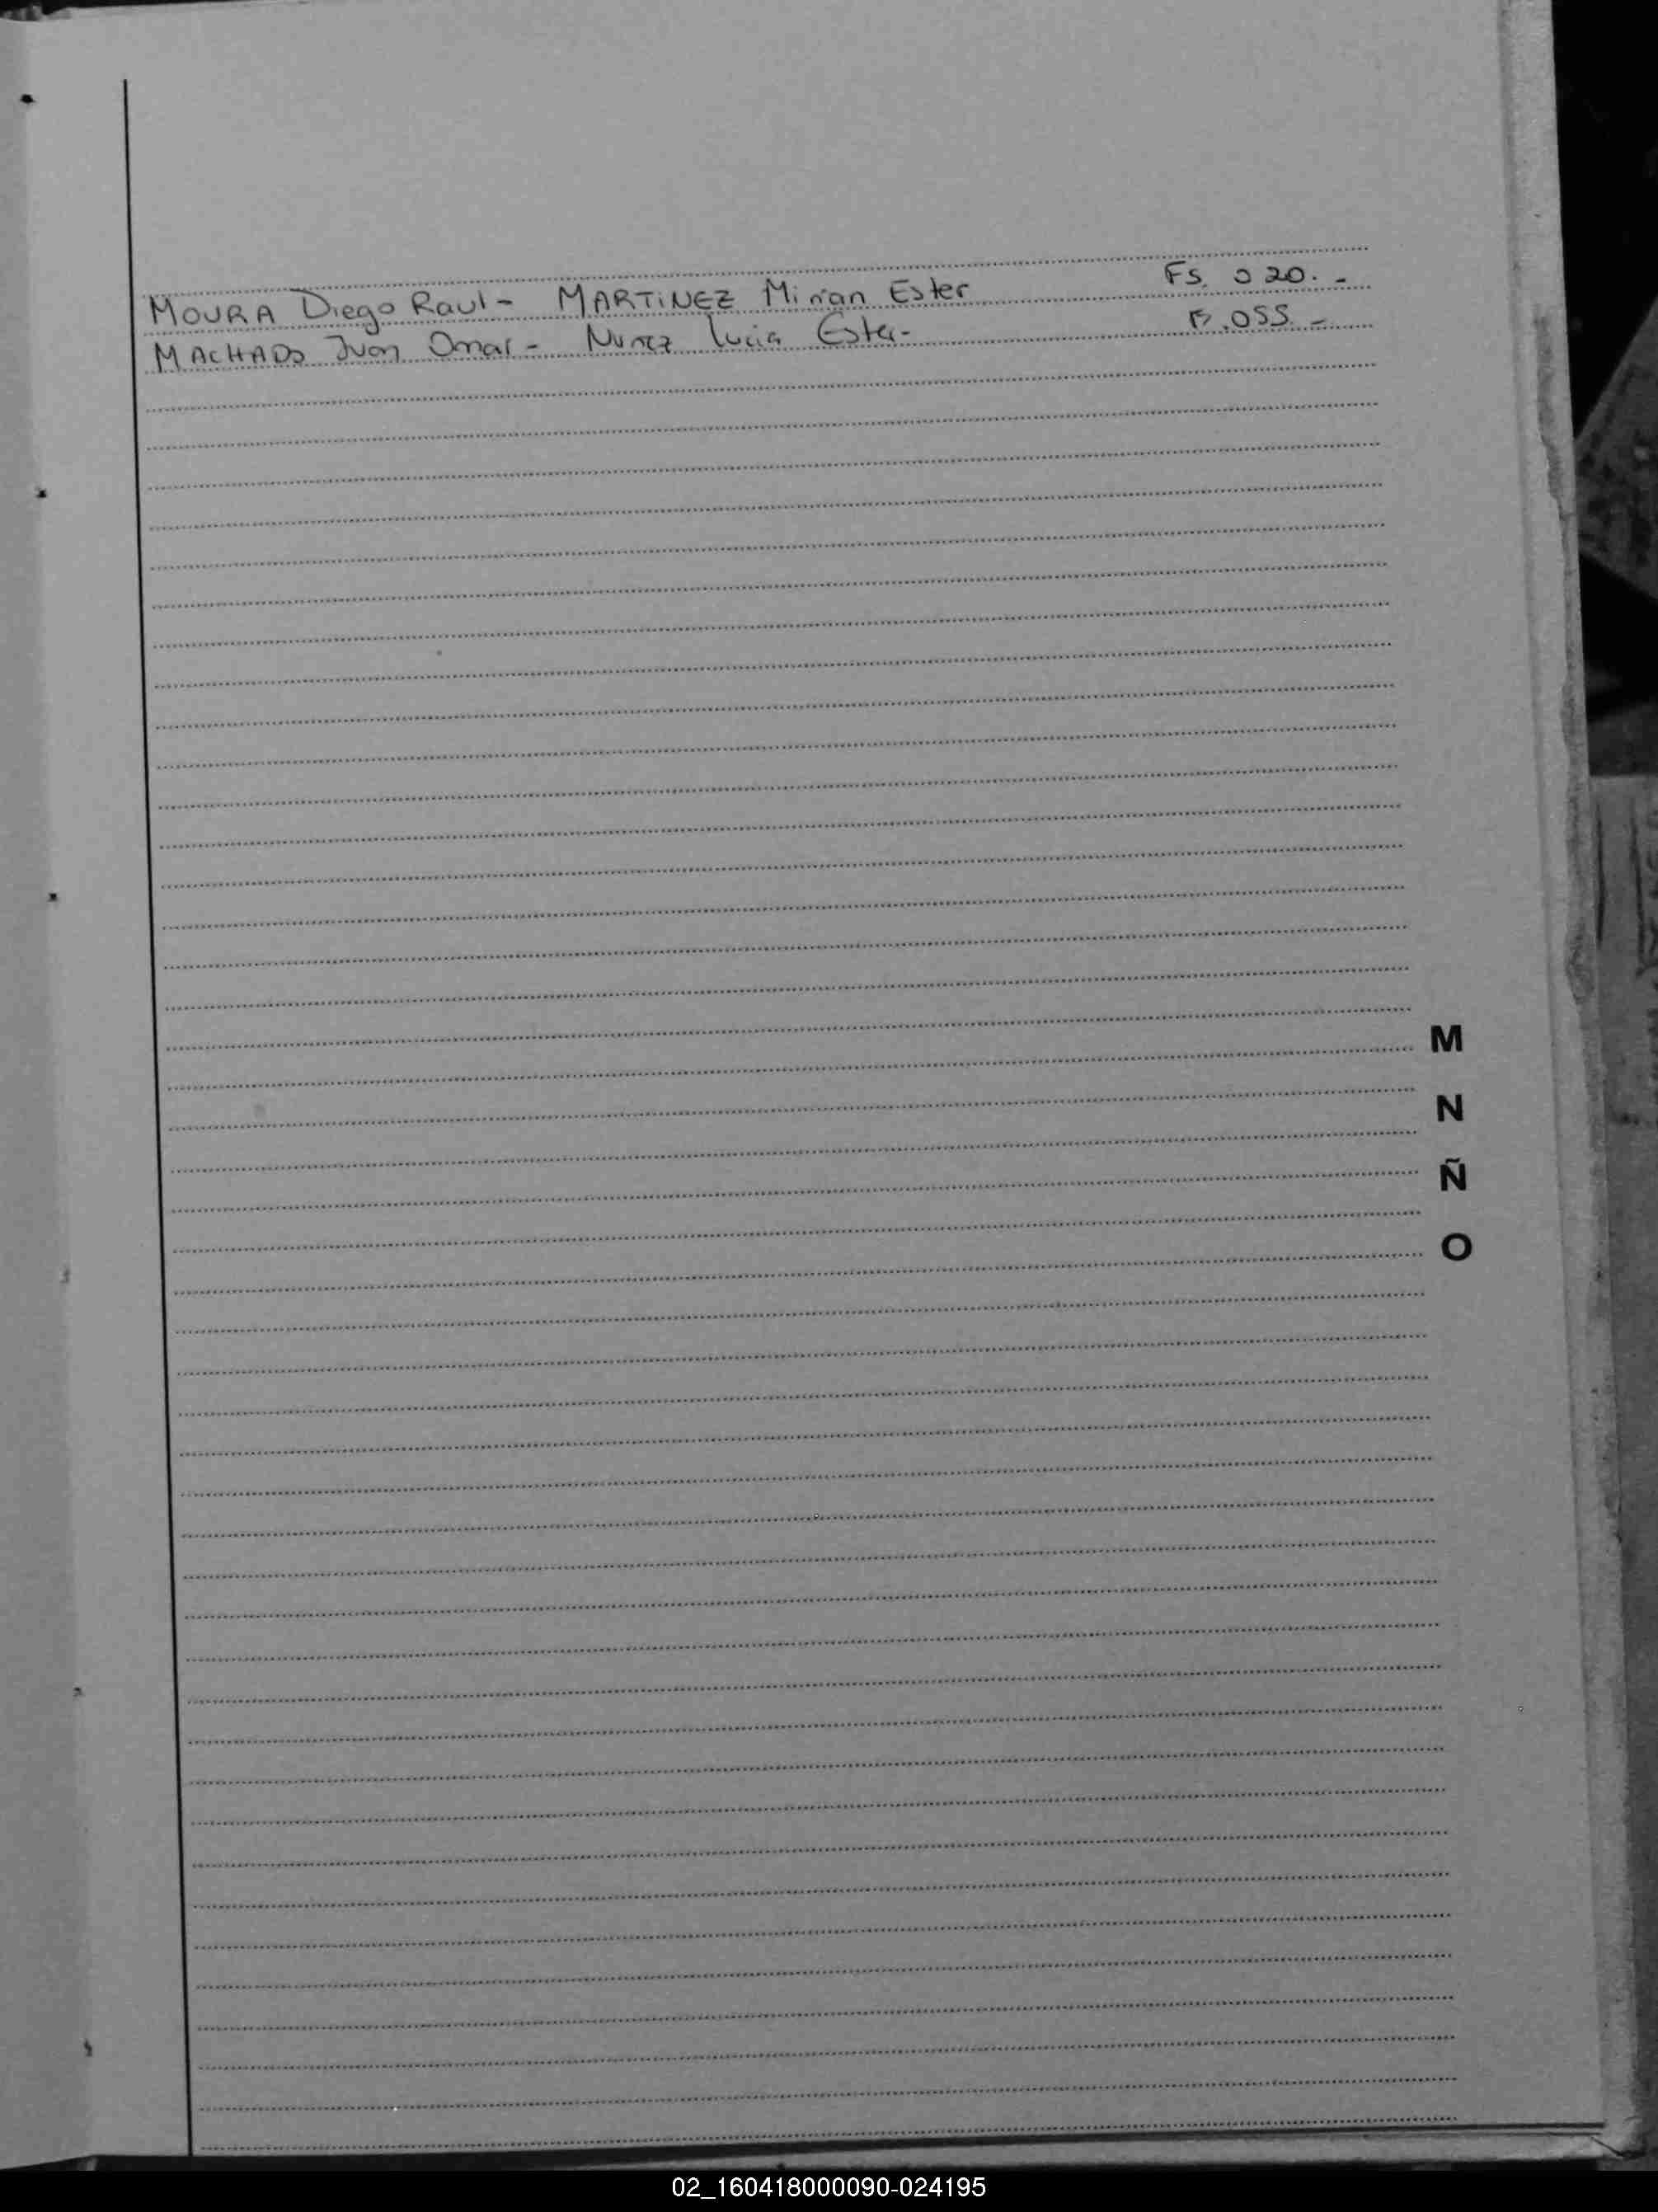 MOURA Diego Raul - MARTiNEZ Mirian Ester Fs. 020. -
MACHADO Juan Omar - Nunez Lucia Ester - F. 055 -
M
N
Ñ
O
02_160418000090-024195